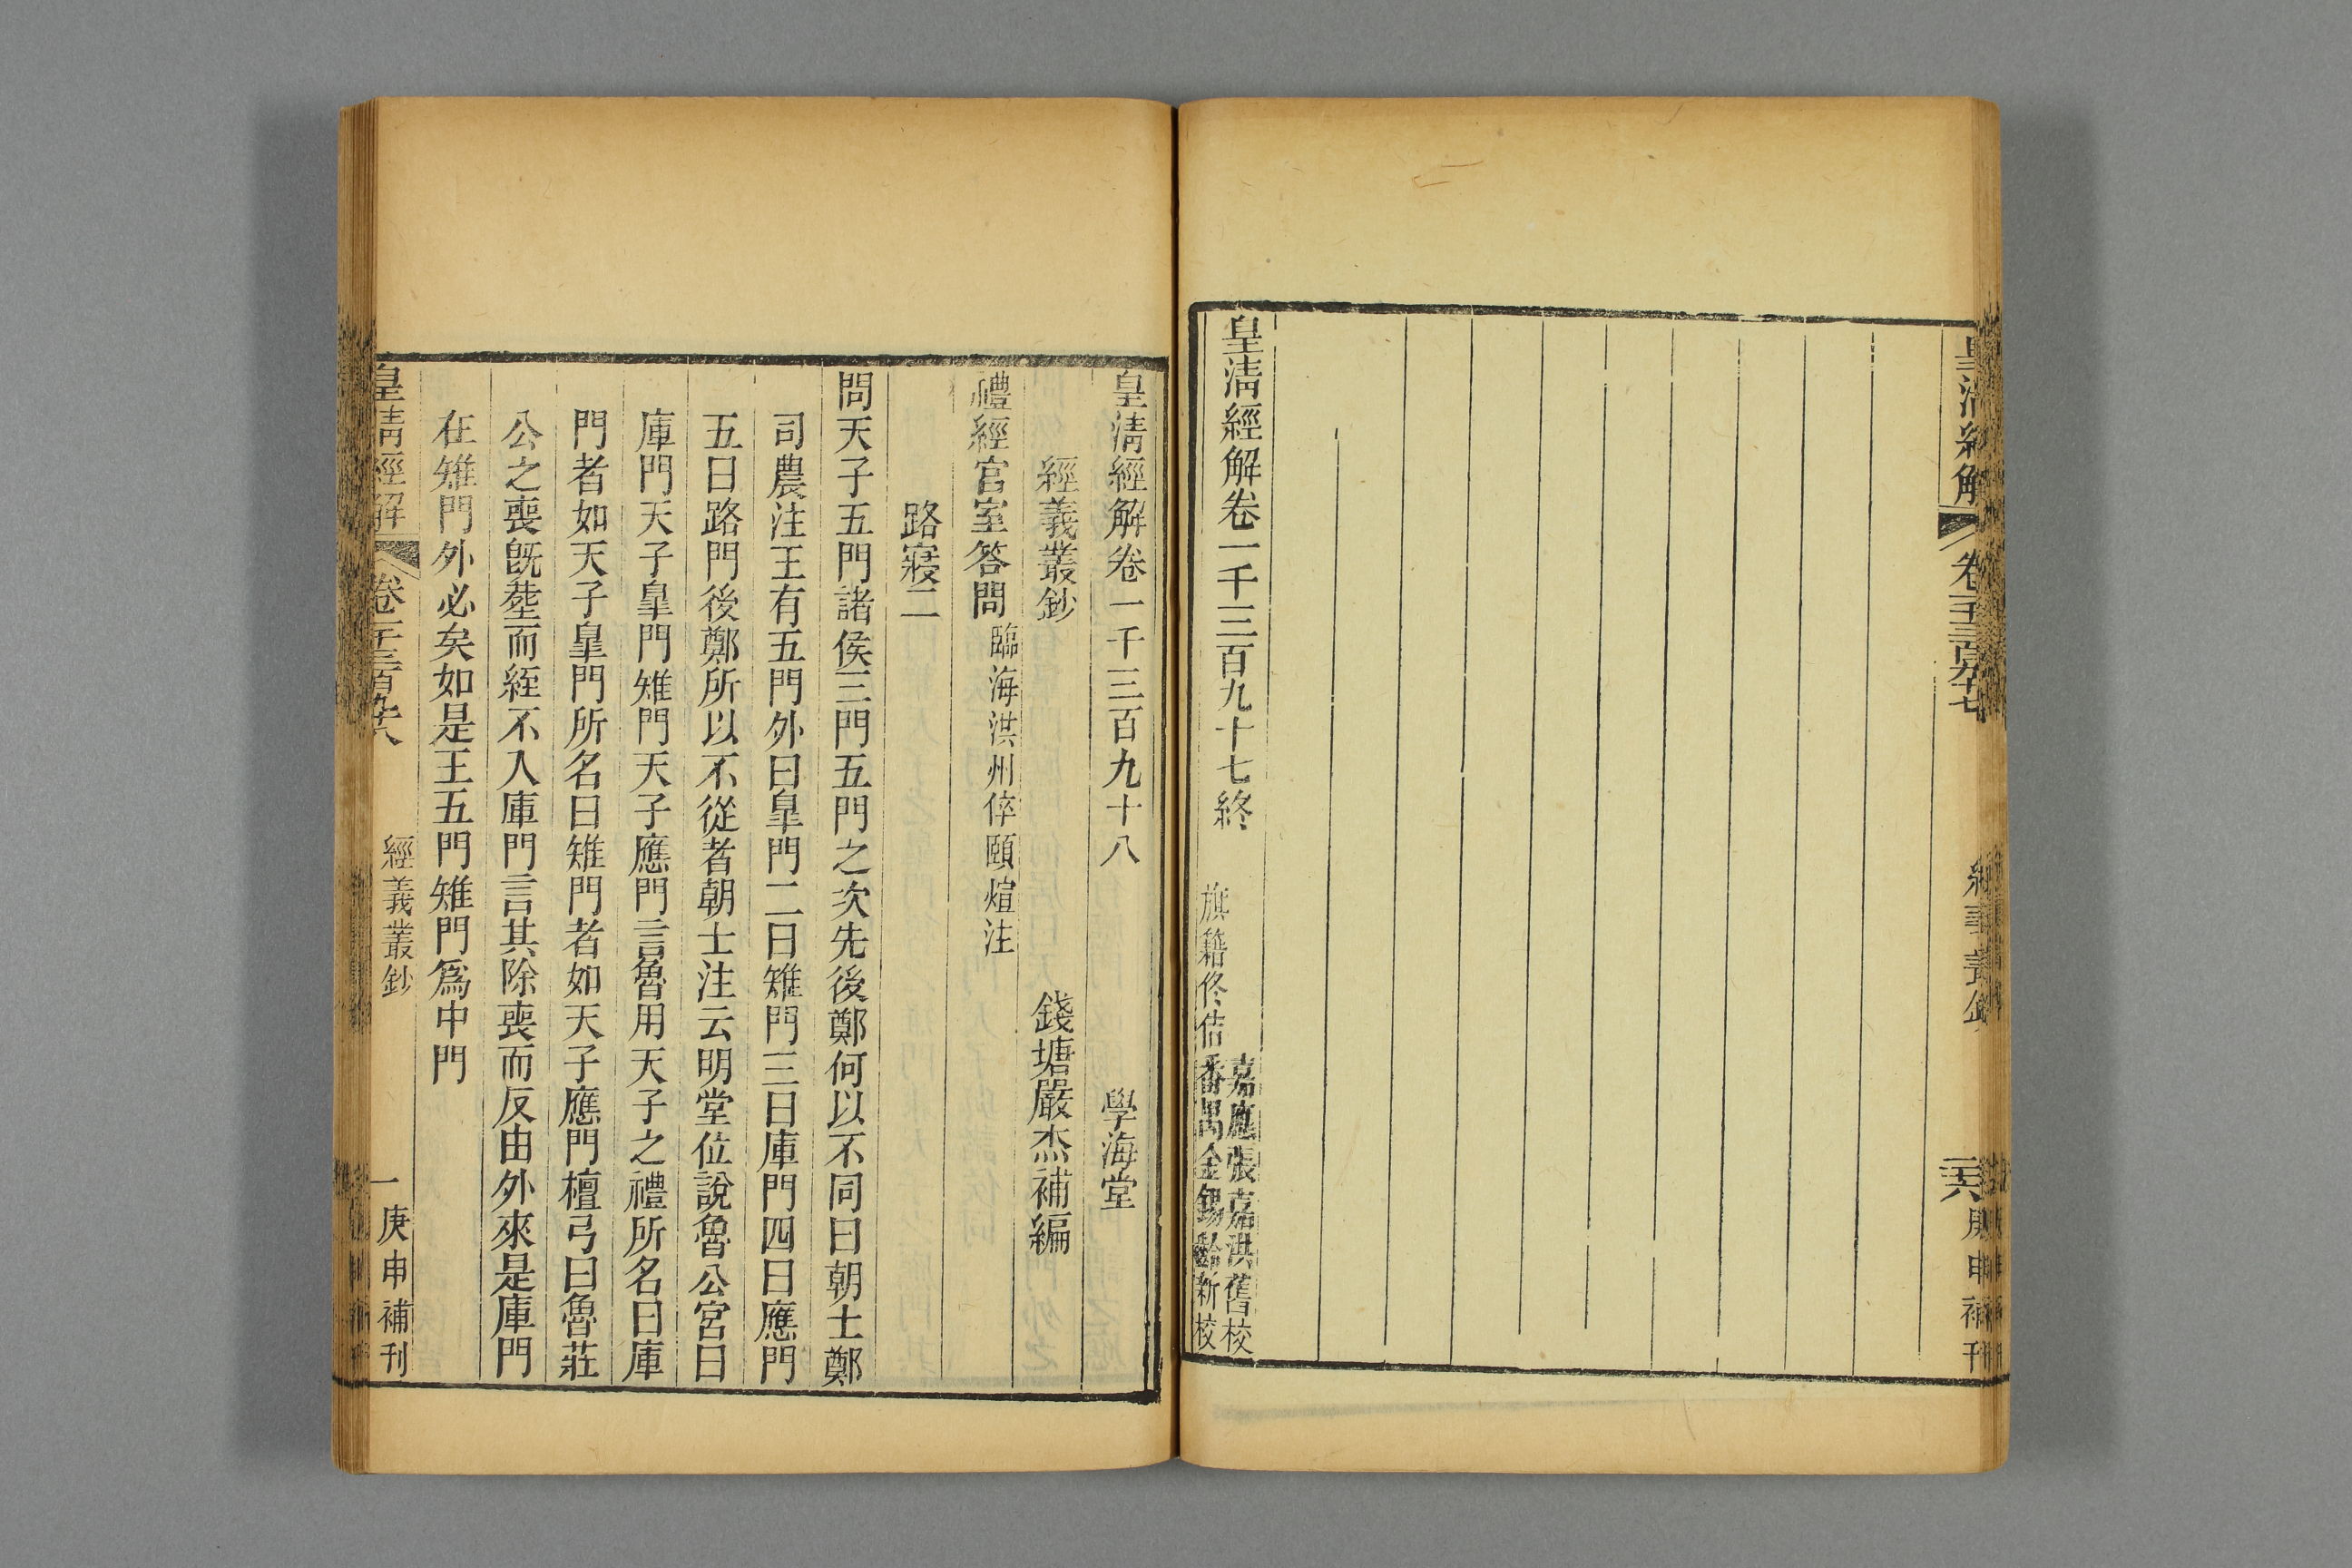 皇清經解
卷一千三百九十七
庚申補刊
皇清經解卷一千三百九十七終
嘉應張嘉洪舊校
旗籍佟佶
番禺金錫齡新校
皇清經解卷一千三百九十八
學海堂
經義叢鈔
錢塘嚴杰補編
禮經宮室答問
臨海洪州倅頤煊注
路寢二
問天子五門諸侯三門五門之次先後鄭何以不同曰朝士鄭
司農注王有五門外曰皐門二曰雉門三曰庫門四曰應門
五曰路門後鄭所以不從者朝士注云明堂位說魯公宮曰
庫門天子皐門雉門天子應門言魯用天子之禮所名曰庫
門者如天子皐門所名曰雉門者如天子應門檀弓曰魯莊
公之喪旣葬而絰不入庫門言其除喪而反由外來是庫門
在雉門外必矣如是王五門雉門爲中門
皇清經解
卷一千三百九十八
經義叢鈔
一
庚申補刊